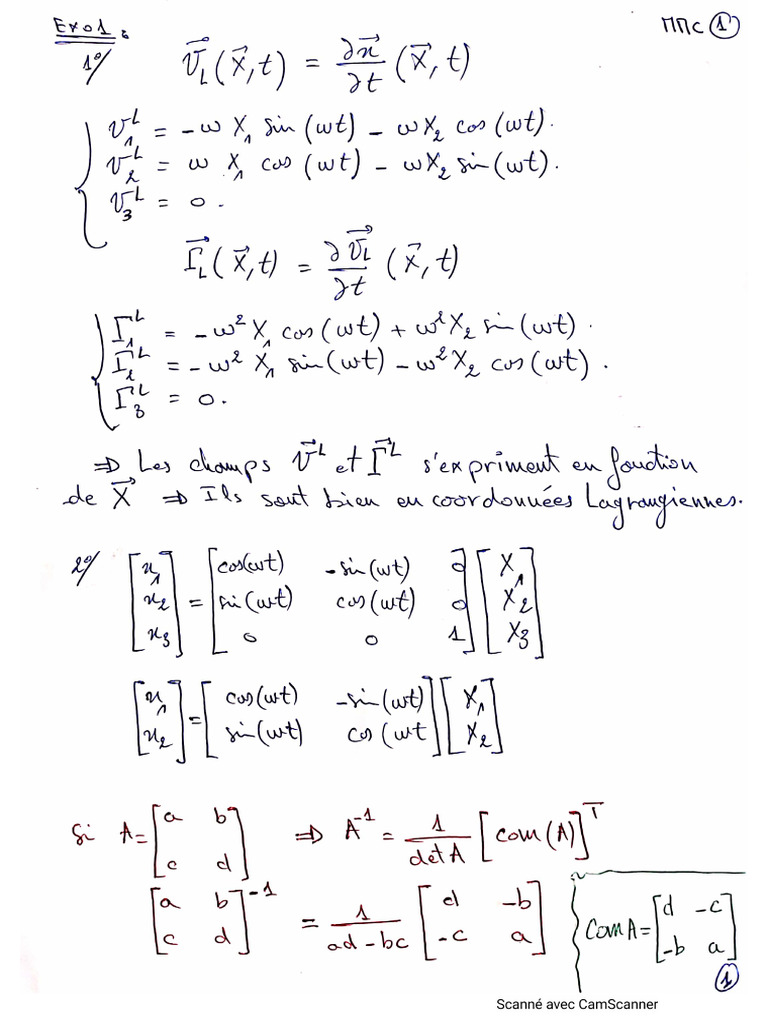 Exo1:
ΠΠC ①
1°/ $\vec{v}_L(\vec{X},t) = \frac{\partial \vec{x}}{\partial t}(\vec{X},t)$
$v_1^L = -\omega X_1 \sin(\omega t) - \omega X_2 \cos(\omega t).$
$v_2^L = \omega X_1 \cos(\omega t) - \omega X_2 \sin(\omega t).$
$v_3^L = 0.$
$\vec{\Gamma}_L(\vec{X},t) = \frac{\partial \vec{v}_L}{\partial t}(\vec{X},t)$
$\Gamma_1^L = -\omega^2 X_1 \cos(\omega t) + \omega^2 X_2 \sin(\omega t).$
$\Gamma_2^L = -\omega^2 X_1 \sin(\omega t) - \omega^2 X_2 \cos(\omega t).$
$\Gamma_3^L = 0.$
⇒ Les champs $\vec{v}^L$ et $\vec{\Gamma}^L$ s'expriment en fonction
de $\vec{X}$ ⇒ Ils sont bien en coordonnées Lagrangiennes.
2°/ $\begin{bmatrix} x_1 \\ x_2 \\ x_3 \end{bmatrix} = \begin{bmatrix} \cos(\omega t) & -\sin(\omega t) & 0 \\ \sin(\omega t) & \cos(\omega t) & 0 \\ 0 & 0 & 1 \end{bmatrix} \begin{bmatrix} X_1 \\ X_2 \\ X_3 \end{bmatrix}$
$\begin{bmatrix} x_1 \\ x_2 \end{bmatrix} = \begin{bmatrix} \cos(\omega t) & -\sin(\omega t) \\ \sin(\omega t) & \cos(\omega t \end{bmatrix} \begin{bmatrix} X_1 \\ X_2 \end{bmatrix}$
Si $A = \begin{bmatrix} a & b \\ c & d \end{bmatrix}$ ⇒ $A^{-1} = \frac{1}{\det A} [com(A)]^T$
$\begin{bmatrix} a & b \\ c & d \end{bmatrix}^{-1} = \frac{1}{ad-bc} \begin{bmatrix} d & -b \\ -c & a \end{bmatrix}$
$Com A = \begin{bmatrix} d & -c \\ -b & a \end{bmatrix}$
①
Scanné avec CamScanner